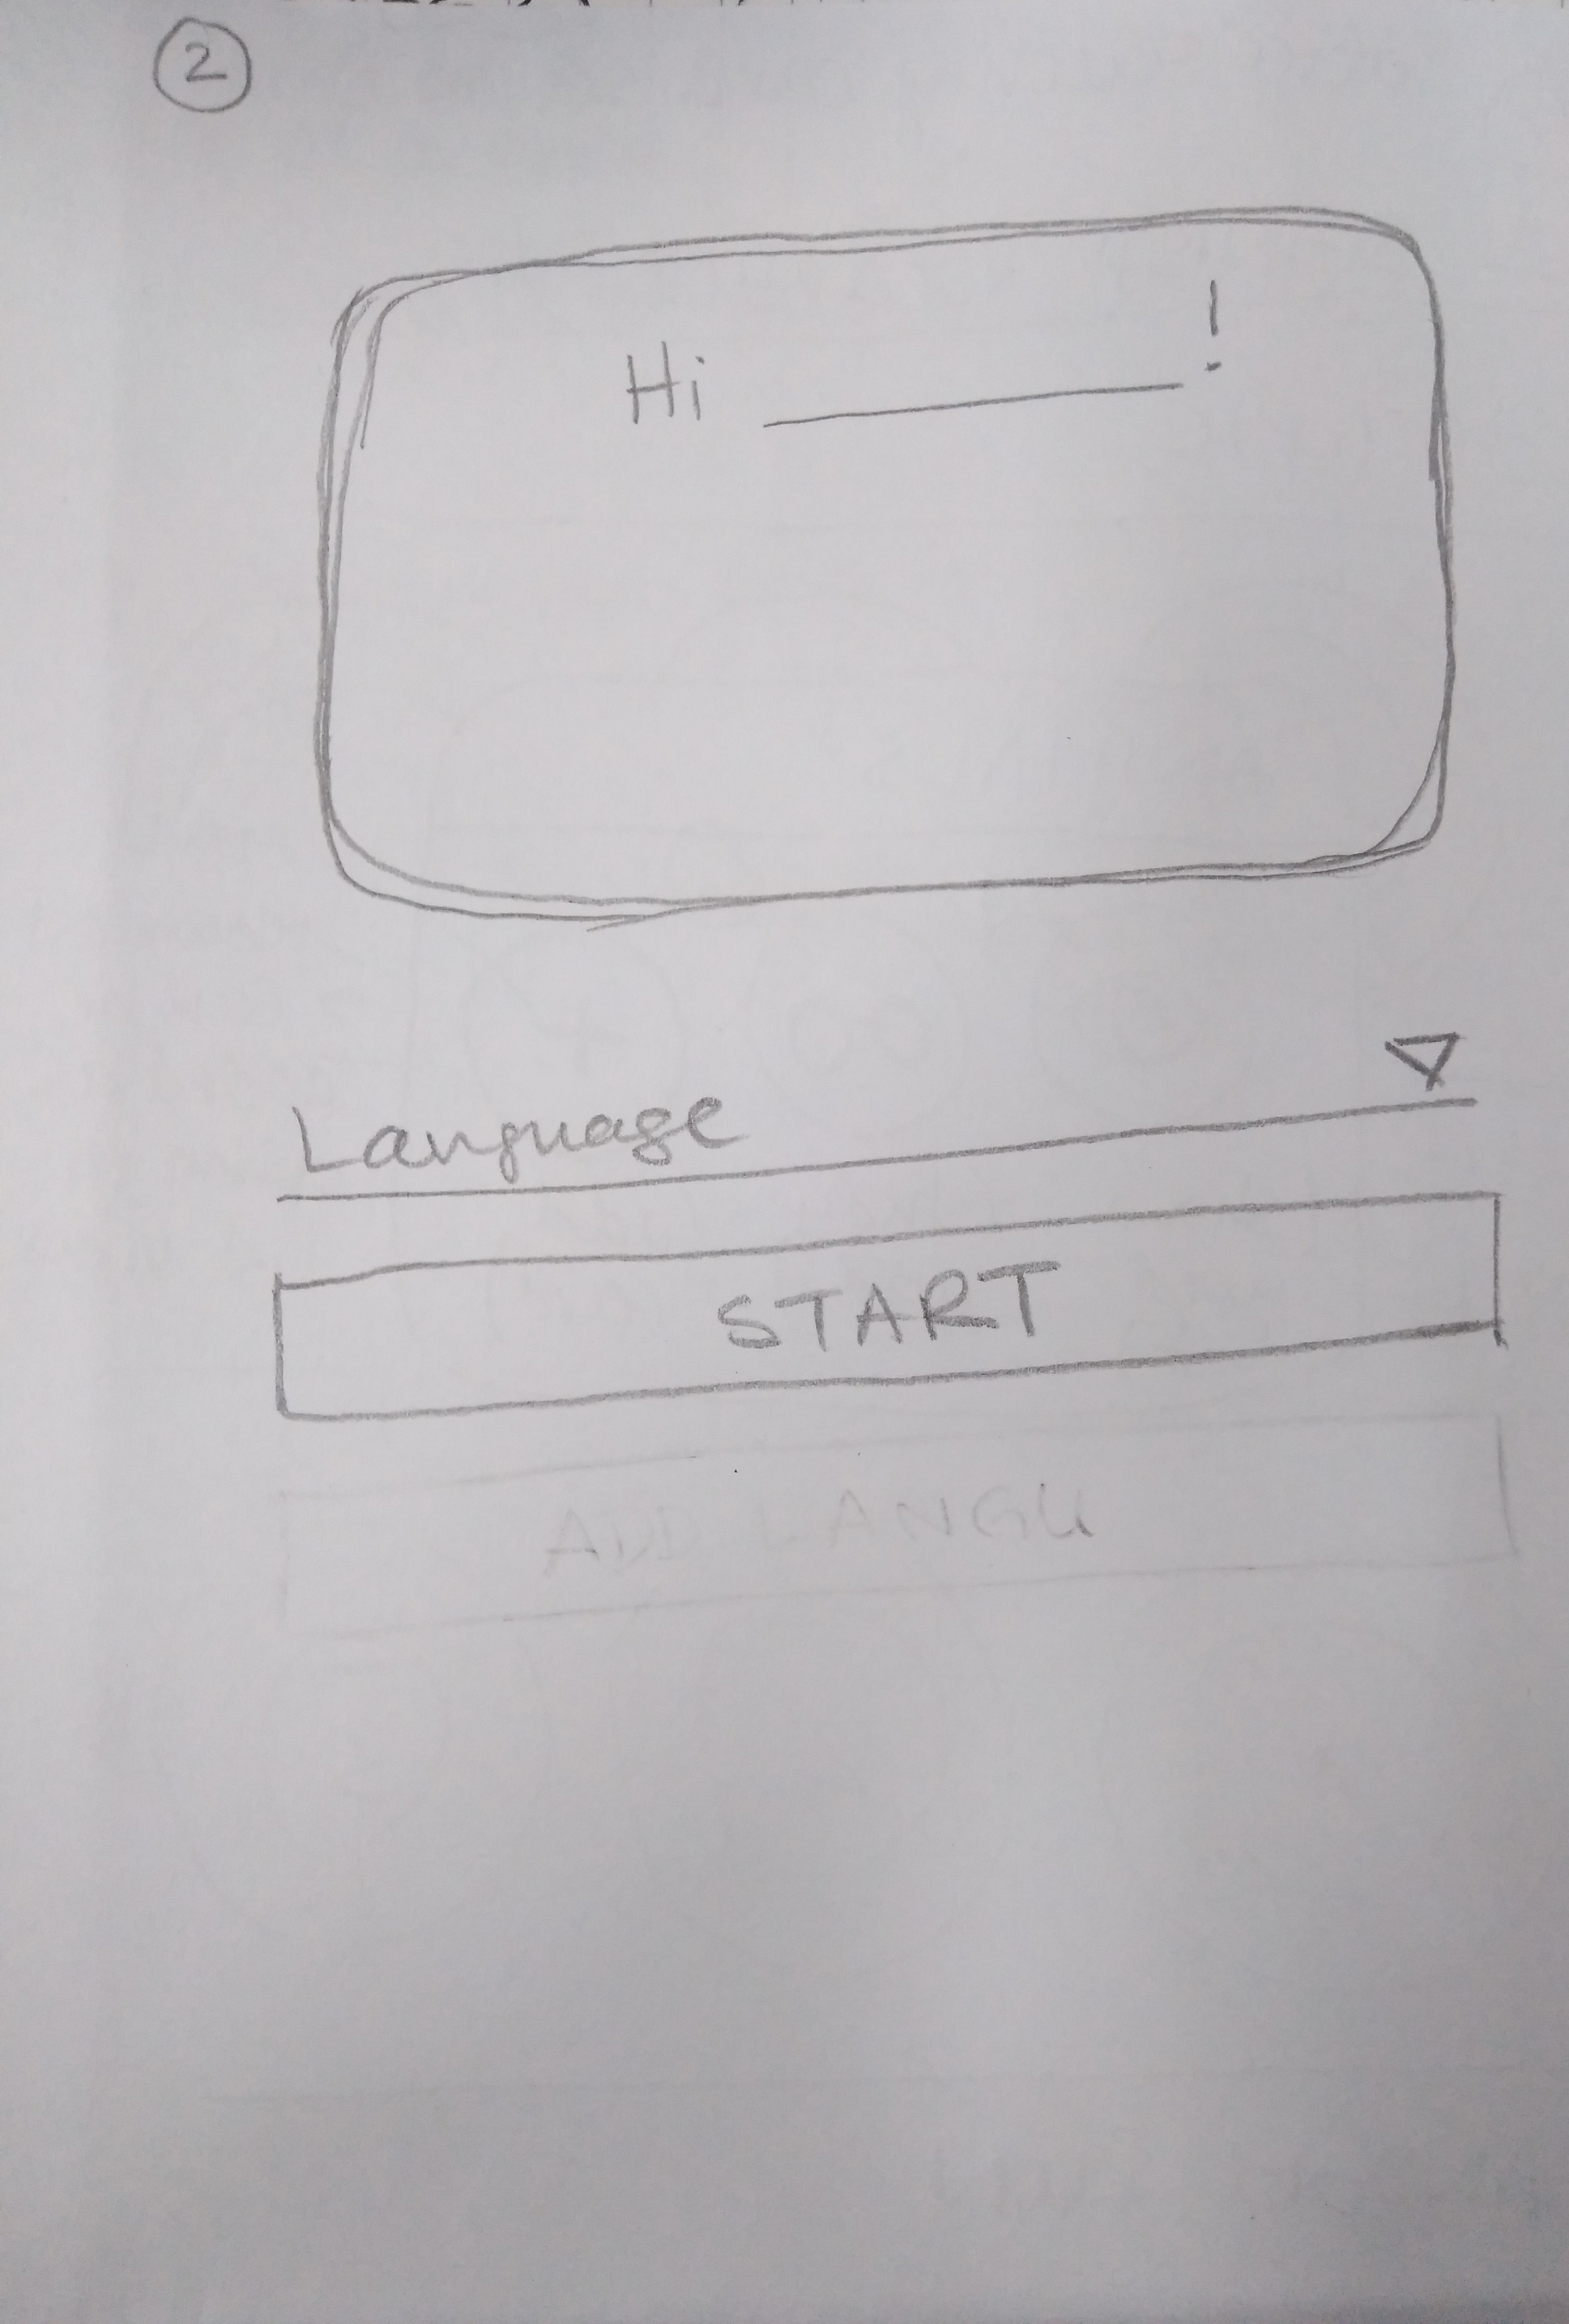 2
Hi ________!
Language
START
ADD LANGU